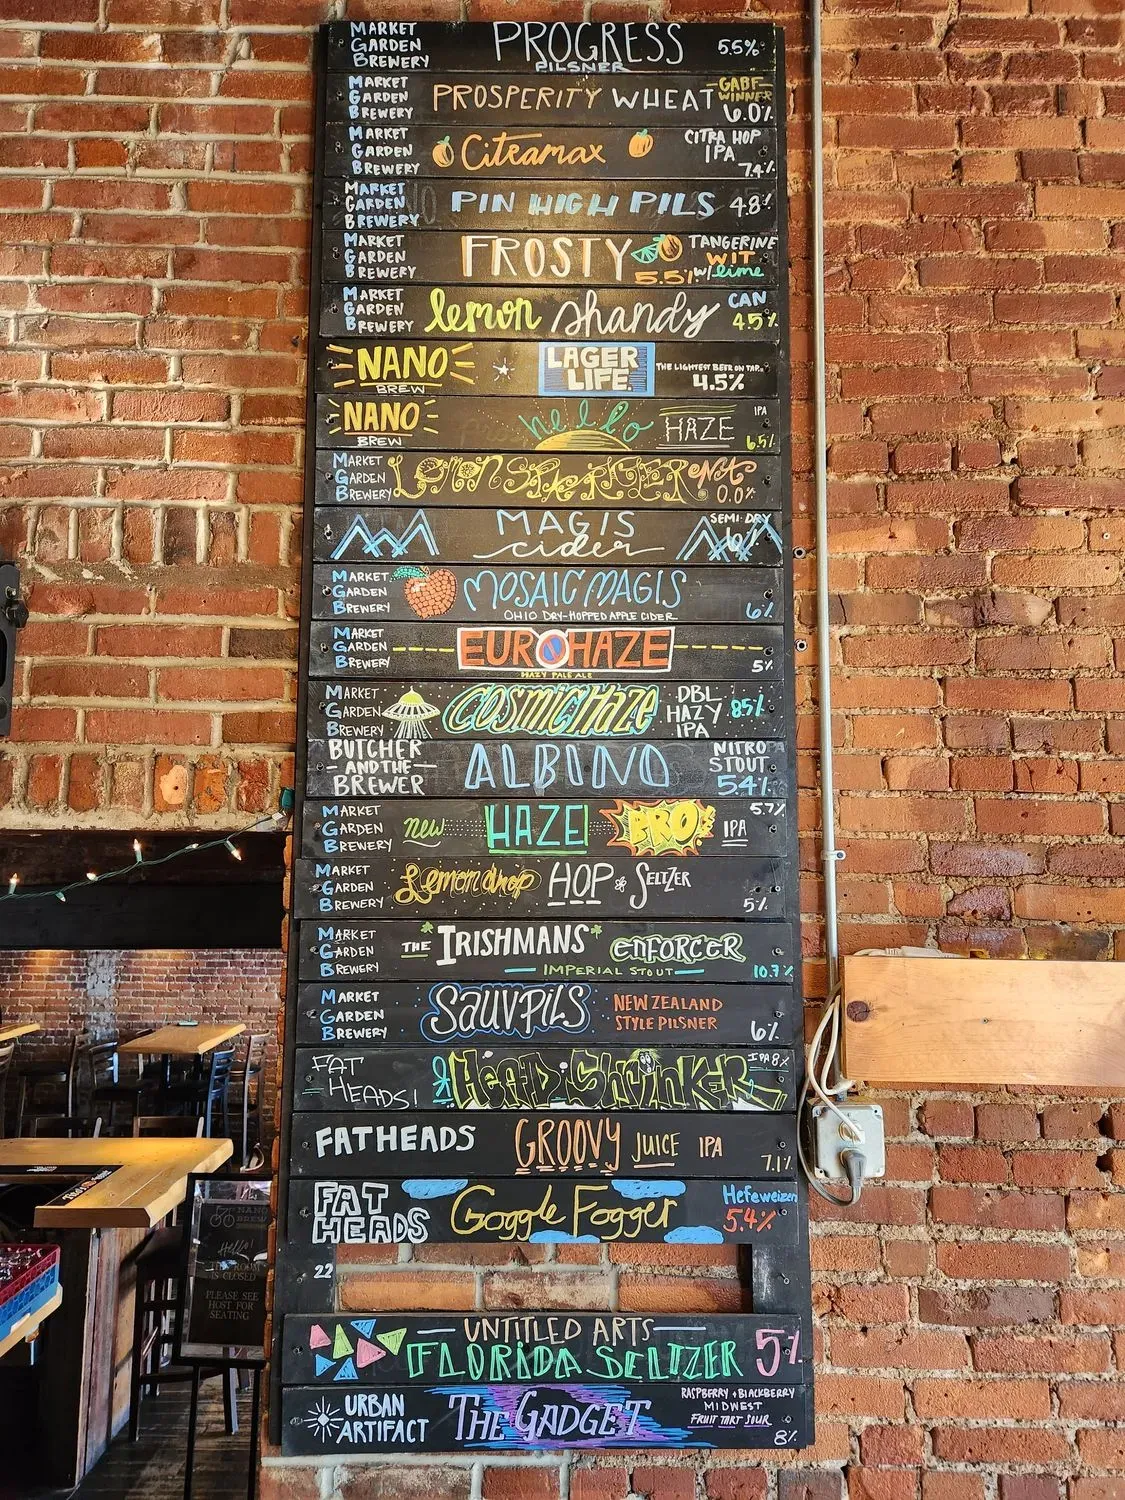 MARKET
GARDEN
BREWERY
PROGRESS
PILSNER
5.5%
MARKET
GARDEN
BREWERY
PROSPERITY WHEAT
GABF
WINNER
6.0%
MARKET
GARDEN
BREWERY
Citramax
CITRA HOP
IPA
7.4%
MARKET
GARDEN
BREWERY
PIN HIGH PILS
4.8%
MARKET
GARDEN
BREWERY
FROSTY
TANGERINE
WIT
5.5% w/ lime
MARKET
GARDEN
BREWERY
lemon shandy
CAN
4.5%
NANO
BREW
LAGER
LIFE.
THE LIGHTEST BEER ON TAP.
4.5%
NANO
BREW
hello
HAZE
IPA
6.5%
MARKET
GARDEN
BREWERY
LEMON SPRETZER
NA
0.0%
MAGIS
cider
SEMI-DRY
6%
MARKET
GARDEN
BREWERY
MOSAIC MAGIS
OHIO DRY-HOPPED APPLE CIDER
6%
MARKET
GARDEN
BREWERY
EUROHAZE
HAZY PALE ALE
5%
MARKET
GARDEN
BREWERY
COSMIC Haze
DBL
HAZY
IPA
8.5%
BUTCHER
AND THE
BREWER
ALBINO
NITRO
STOUT
5.4%
MARKET
GARDEN
BREWERY
new
HAZE
BRO
IPA
5.7%
MARKET
GARDEN
BREWERY
Lemon drop
HOP SELTZER
5%
MARKET
GARDEN
BREWERY
THE IRISHMANS ENFORCER
IMPERIAL STOUT
10.7%
MARKET
GARDEN
BREWERY
SAUVPILS
NEW ZEALAND
STYLE PILSNER
6%
FAT
HEADS!
HEAD SHRINKER
IPA 8%
FATHEADS
GROOVY JUICE IPA
7.1%
FAT
HEADS
Goggle Fogger
Hefeweizen
5.4%
22
UNTITLED ARTS
FLORIDA SELTZER
5%
URBAN
ARTIFACT
THE GADGET
RASPBERRY + BLACKBERRY
MIDWEST
FRUIT TART SOUR
8%
NANO
BREW
Hello!
IS CLOSED
PLEASE SEE
HOST FOR
SEATING